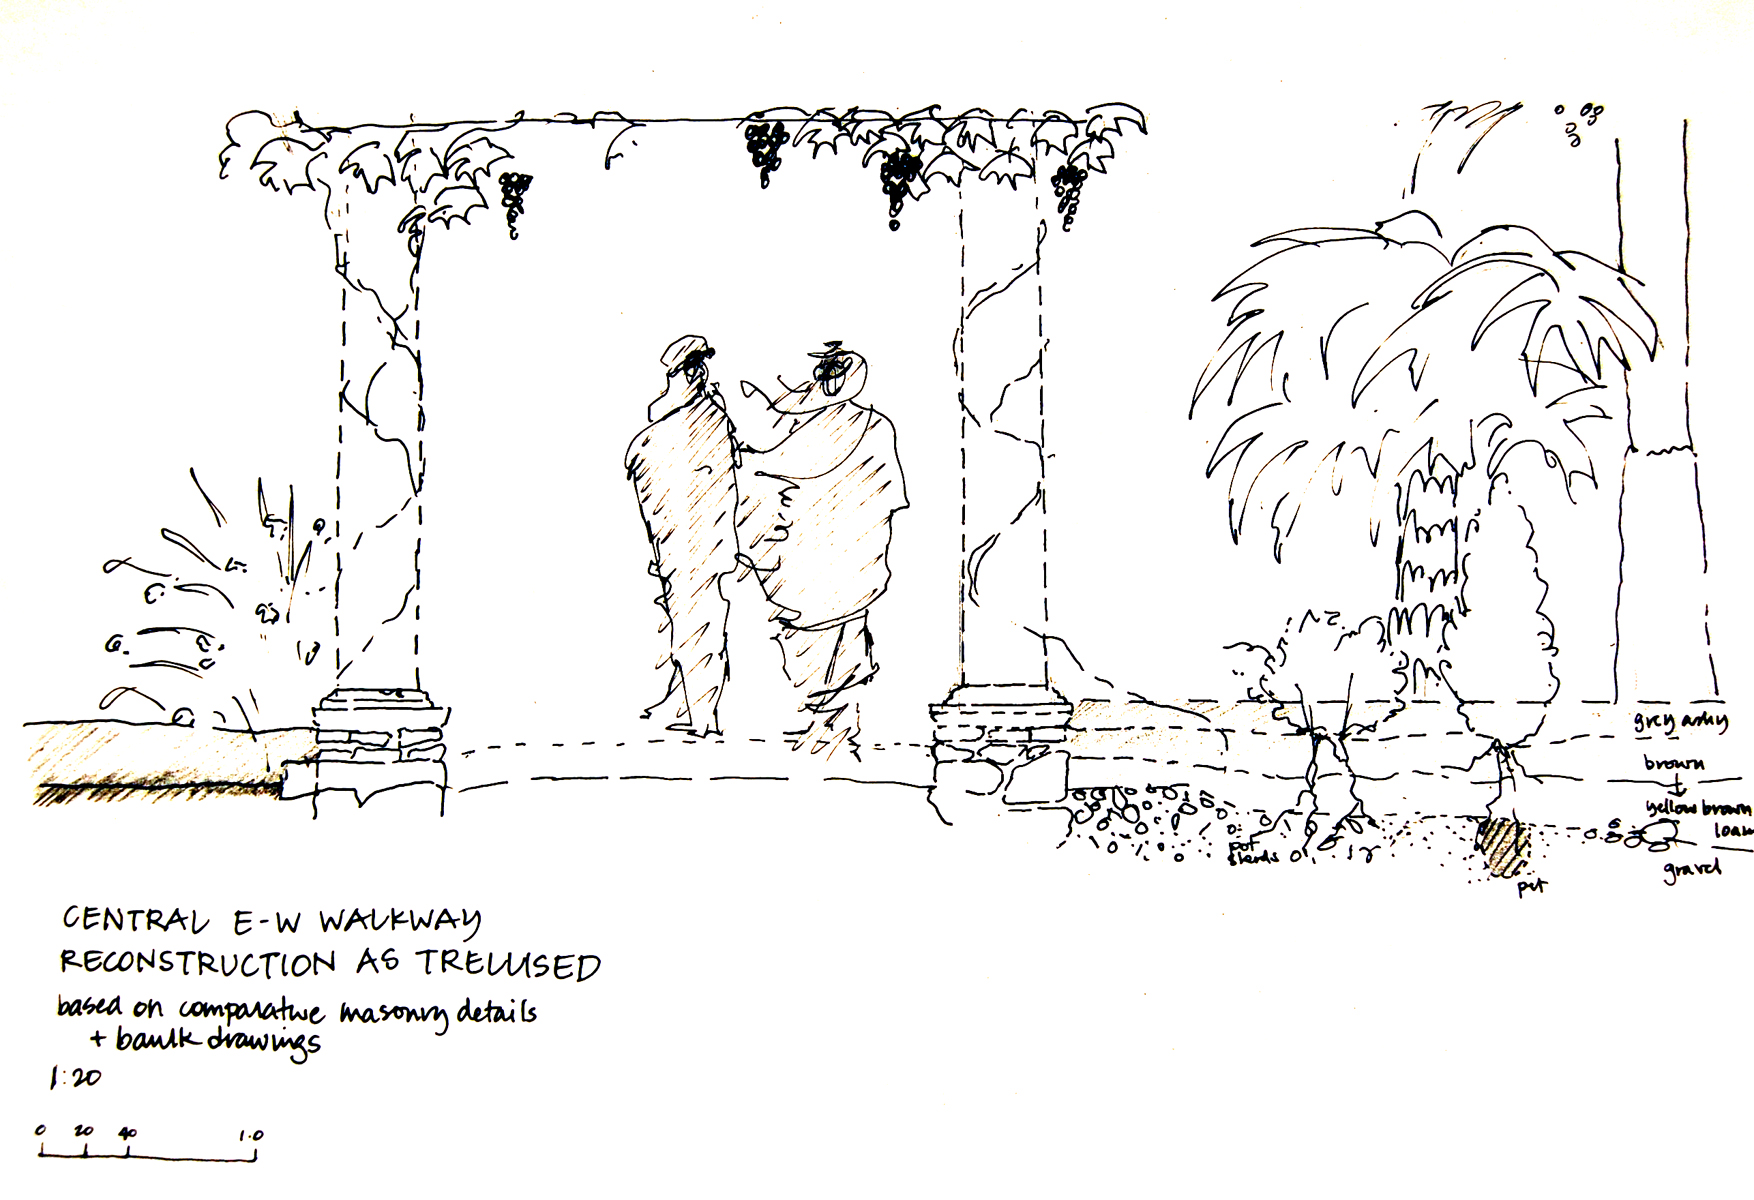 grey ashy
brown
yellow brown
loam
gravel
pot
sherds
pit
CENTRAL E-W WALKWAY
RECONSTRUCTION AS TRELLISED
based on comparative masonry details
+ baulk drawings
1:20
0 20 40 1.0